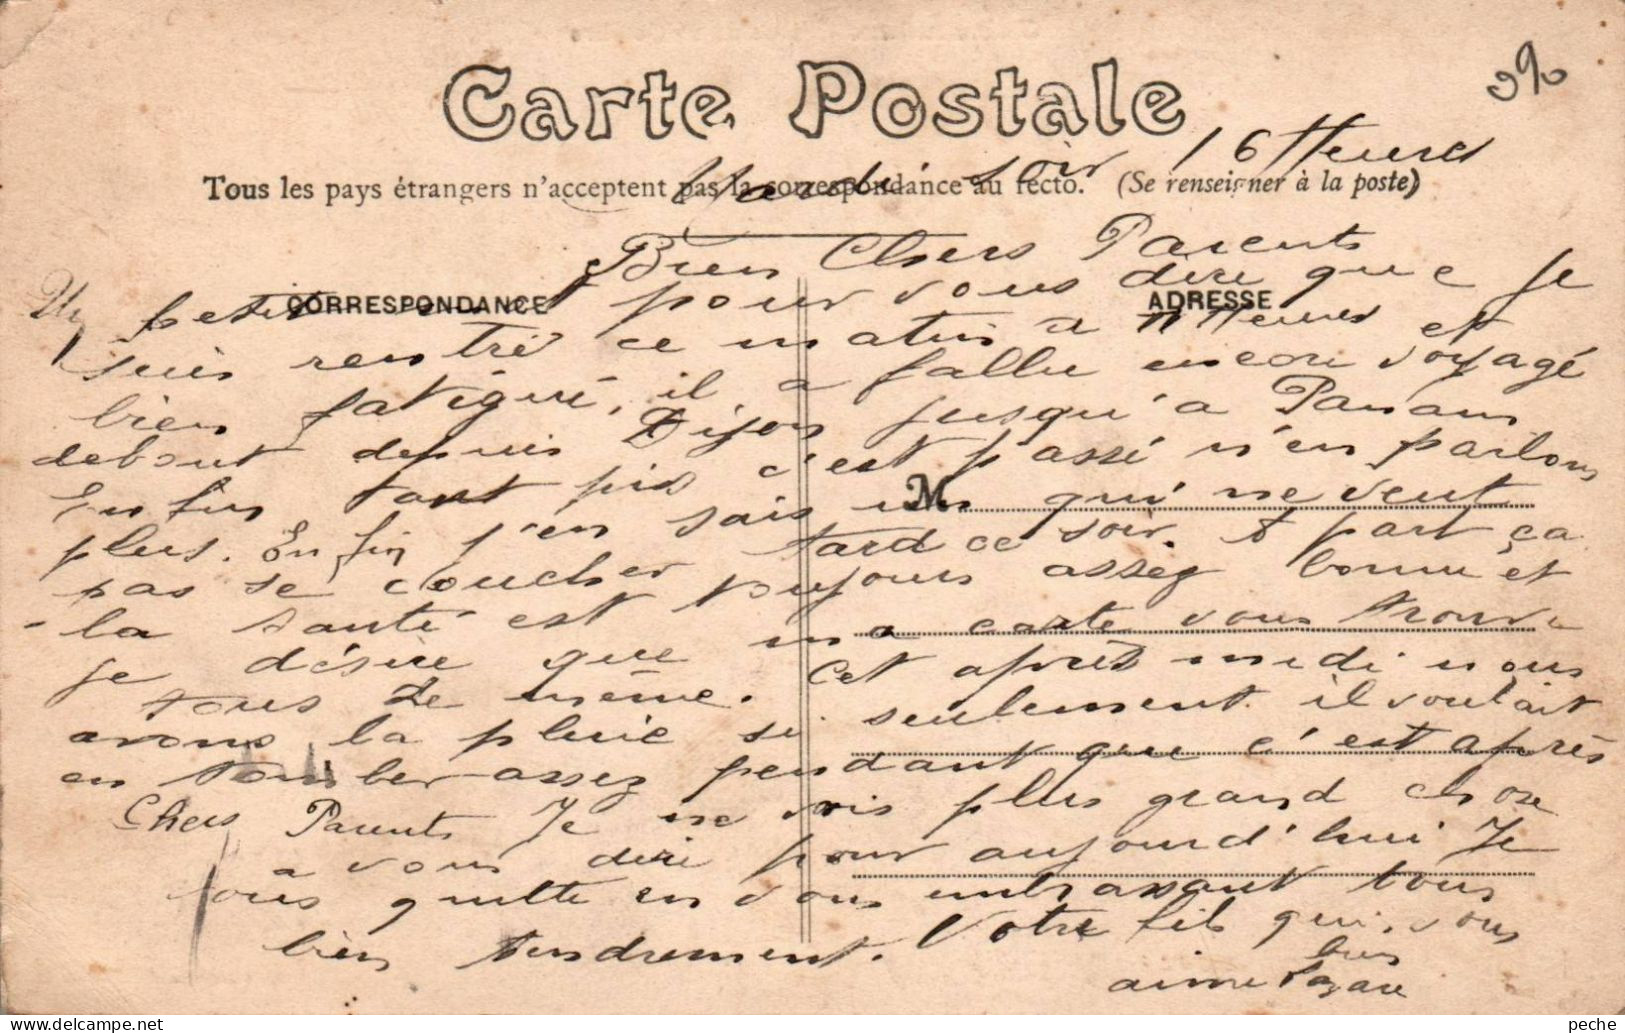 390
Carte Postale
Mardi soir 16 Heures
Tous les pays étrangers n'acceptent pas la correspondance au recto. (Se renseigner à la poste)
Bien Chers Parents
CORRESPONDANCE
ADRESSE
Un petit mot pour vous dire que je
suis rentré ce matin à 11 Heures et
bien fatigué, il a fallu encore voyagé
debout depuis Dijon jusqu'à Panam
Enfin tant pis c'est passé n'en parlons
plus. Enfin j'en sais un qui ne veut
M
pas se coucher tard ce soir. A part ça
la santé est toujours assez bonne et
je désire que ma carte vous trouve
tous de même. Cet après midi nous
avons la pluie si seulement il voulait
en tomber assez pendant que c'est après
Chers Parents Je ne vois plus grand chose
a vous dire pour aujourd'hui Je
vous quitte en vous embrassant tous
bien tendrement. Votre fils qui vous
aime bien Lazare
peche